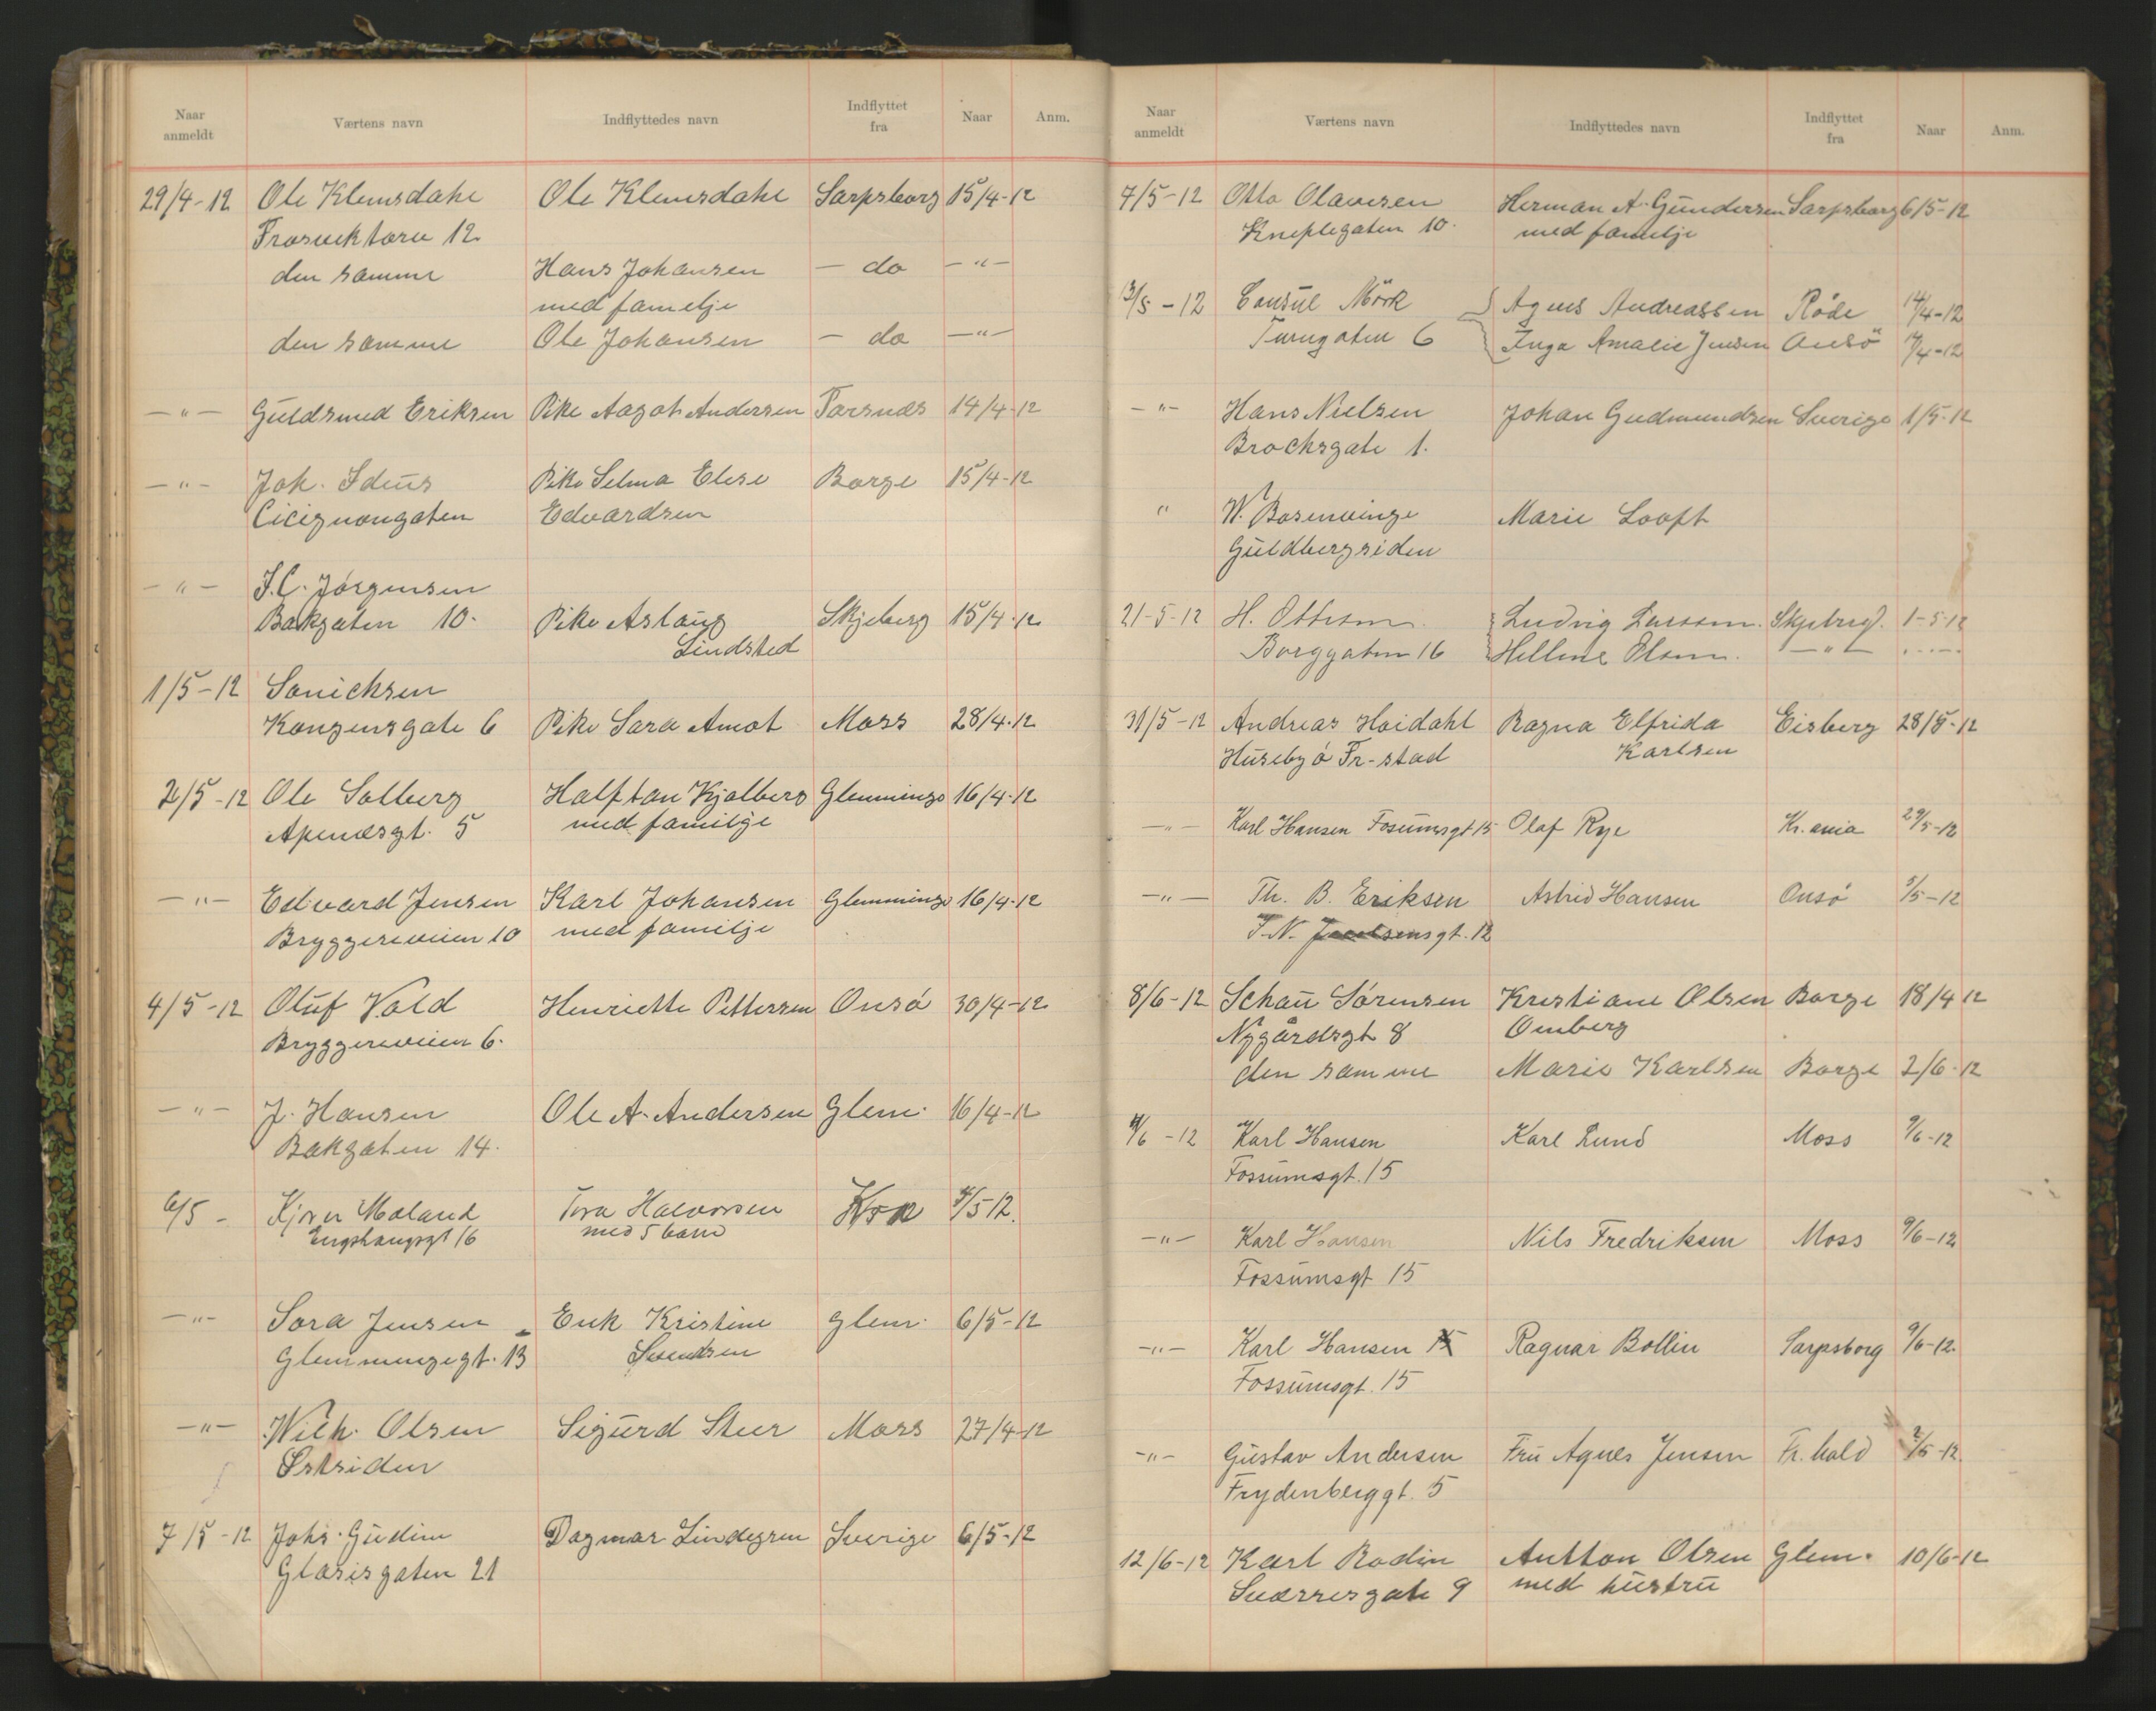 Naar anmeldt Værtens navn Indflyttedes navn Indflyttet fra Naar Anm.
29/4-12 Ole Klemsdahl Ole Klemsdahl Sarpsborg 15/4-12
12.
den samme Hans Johansen - do - " -
med familje
den samme Ole Johansen - do - " -
- " - Guldsmed Eriksen Pike Aagot Andersen Torsnæs 14/4-12
- " - Joh. Idéus Pike Selma Elise Borge 15/4-12
Cicignongaten Edvardsen
- " - J.C. Jørgensen
Bakgaten 10. Pike Aslaug Skjeberg 15/4-12
Lindsted
1/5-12 Sonicksen
Kongensgate 6 Pike Sara Amot Moss 28/4-12
2/5-12 Ole Solberg Halfdan Kjølberg Glemminge 16/4-12
Apenæsgt. 5 med familje
- " - Edvard Jensen Karl Johansen Glemminge 16/4-12
Bryggeriveien 10 med familje
4/5-12 Oluf Vold Henriette Pettersen Onsø 30/4-12
Bryggeriveien 6.
- " - J. Hansen Ole A. Andersen Glem. 16/4-12
Bakgaten 14.
6/5 - Moland Tora Halvorsen 4/5 12.
Enghaugsgt 16 med 5 barn
- " - Sara Jensen Enk Kristine Glem. 6/5-12
Glemmengegt. 13 Svendsen
- " - Wilh. Olsen Sigurd Steer Moss 27/4-12
Østsiden
7/5-12 Johs. Gudim Dagmar Lindegren Sverige 6/5-12
Glasisgaten 21
Naar anmeldt Værtens navn Indflyttedes navn Indflyttet fra Naar Anm.
7/5-12 Otto Olavesen Herman A. Gundersen Sarpsborg 6/5-12
Kneplegaten 10. med familje
13/5-12 Consul Mörk Agnes Andreassen Råde 14/4-12
Turngaten 6 Inga Amalie Jensen Onsö 14/4-12
- " - Hans Nielsen Johan Gudmundsen Sverige 1/5-12
Brochsgate 1.
" W. Rosenvinge Marie Looft
Guldbergsiden
21-5-12 H. Ottesen Ludvig Larssen. Skjebrg. 1-5-12
Borggaten 16 Hellene Olsen. - " -
31/5-12 Andreas Hoidahl Ragna Elfrida Eisberg 28/5-12
Husebyø Fr-stad Karlsen
- " - Karl Hansen Fosumsgt 15 Olaf Rye Kr.ania 29/5-12
- " - Th. B. Eriksen Astrid Hansen Onsø 5/5-12
J.N. Jacobsensgt. 12
8/6-12 Schau Sørensen Kristiane Olsen Borge 18/4 12
Nygårdsgt 8 Omberg
den samme Marie Karlsen Borge 2/6-12
11/6-12 Karl Hansen Karl Lund Moss 9/6-12
Fossumsgt. 15
- " - Karl Hansen Nils Fredriksen Moss 9/6-12
Fossumsgt 15
- " - Karl Hansen 15 Ragnar Bollin Sarpsborg 9/6-12.
Fossumsgt. 15
- " - Gustav Andersen Fru Agnes Jensen Fr.hald 2/5-12.
Frydenberggt. 5
12/6-12 Karl Rodin Antton Olsen Glem. 10/6-12
Sværresgate 9 med hustru